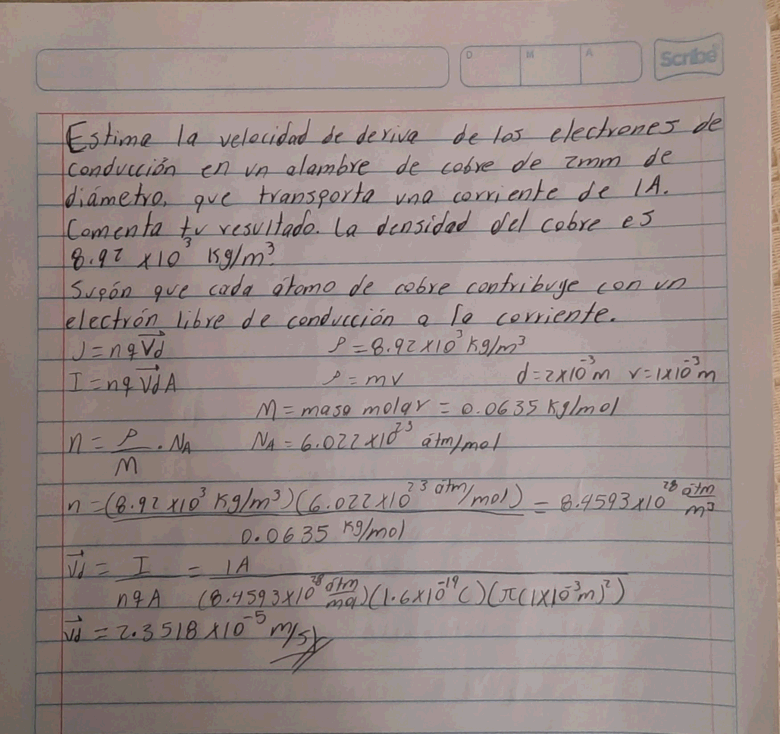 D M A Scribe
Estima la velocidad de deriva de los electrones de
conducción en un alambre de cobre de 2mm de
diámetro, que transporta una corriente de 1A.
Comenta tu resultado. La densidad del cobre es
8.92 x10³ Kg/m³.
Supón que cada átomo de cobre contribuye con un
electrón libre de conducción a la corriente.
J = nqV⃗d ρ = 8.92x10³ Kg/m³
I = nqV⃗dA ρ = mv d = 2x10⁻³m r = 1x10⁻³m
M = masa molar = 0.0635 Kg/mol
n = ρ/M · NA NA = 6.022x10²³ átm/mol
n = (8.92 x10³ Kg/m³)(6.022x10²³ átm/mol) / 0.0635 Kg/mol = 8.4593x10²⁸ átm/m³
V⃗d = I/nqA = 1A / (8.4593x10²⁸ átm/mol)(1.6x10⁻¹⁹C)(π(1x10⁻³m)²)
V⃗d = 2.3518x10⁻⁵ m/s